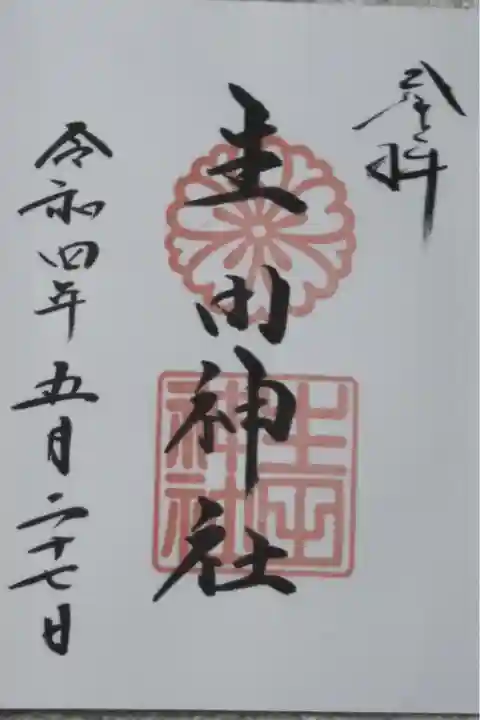 奉拝
生田神社
生田
神社
令和四年五月二十七日